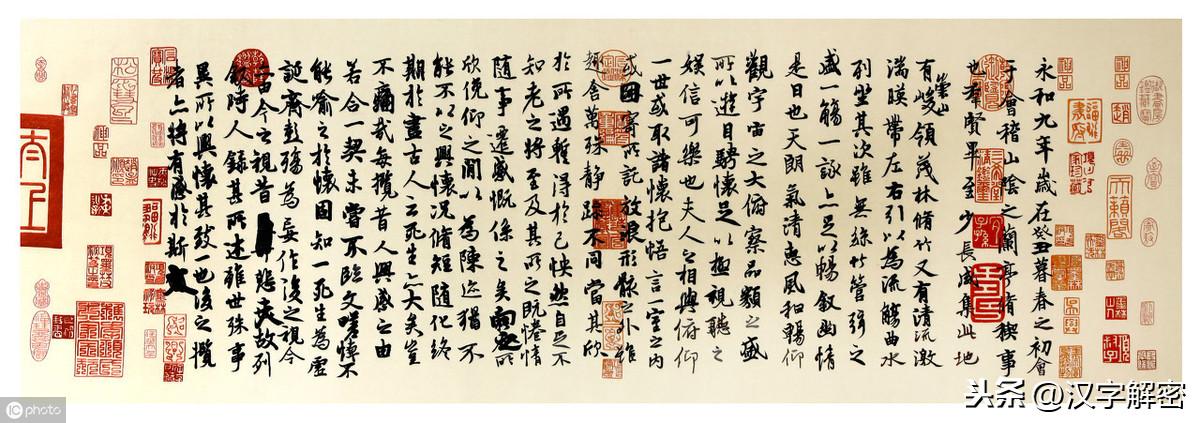 永和九年歲在癸丑暮春之初會
于會稽山陰之蘭亭脩稧事
也羣賢畢至少長咸集此地
有崇山峻領茂林脩竹又有清流激
湍暎帶左右引以為流觴曲水
列坐其次雖無絲竹管弦之
盛一觴一詠亦足以暢敘幽情
是日也天朗氣清惠風和暢仰
觀宇宙之大俯察品類之盛
所以遊目騁懷足以極視聽之
娛信可樂也夫人之相與俯仰
一世或取諸懷抱悟言一室之內
或因寄所託放浪形骸之外雖
趣舍萬殊靜躁不同當其欣
於所遇蹔得於己怏然自足不
知老之將至及其所之既惓情
隨事遷感慨係之矣向之所
欣俛仰之閒以為陳迹猶不
能不以之興懷況脩短隨化終
期於盡古人云死生亦大矣豈
不痛哉每攬昔人興感之由
若合一契未嘗不臨文嗟悼不
能喻之於懷固知一死生為虛
誕齊彭殤為妄作後之視今
亦由今之視昔悲夫故列
敘時人錄其所述雖世殊事
異所以興懷其致一也後之攬
者亦將有感於斯文
頭条 @汉字解密
iC photo